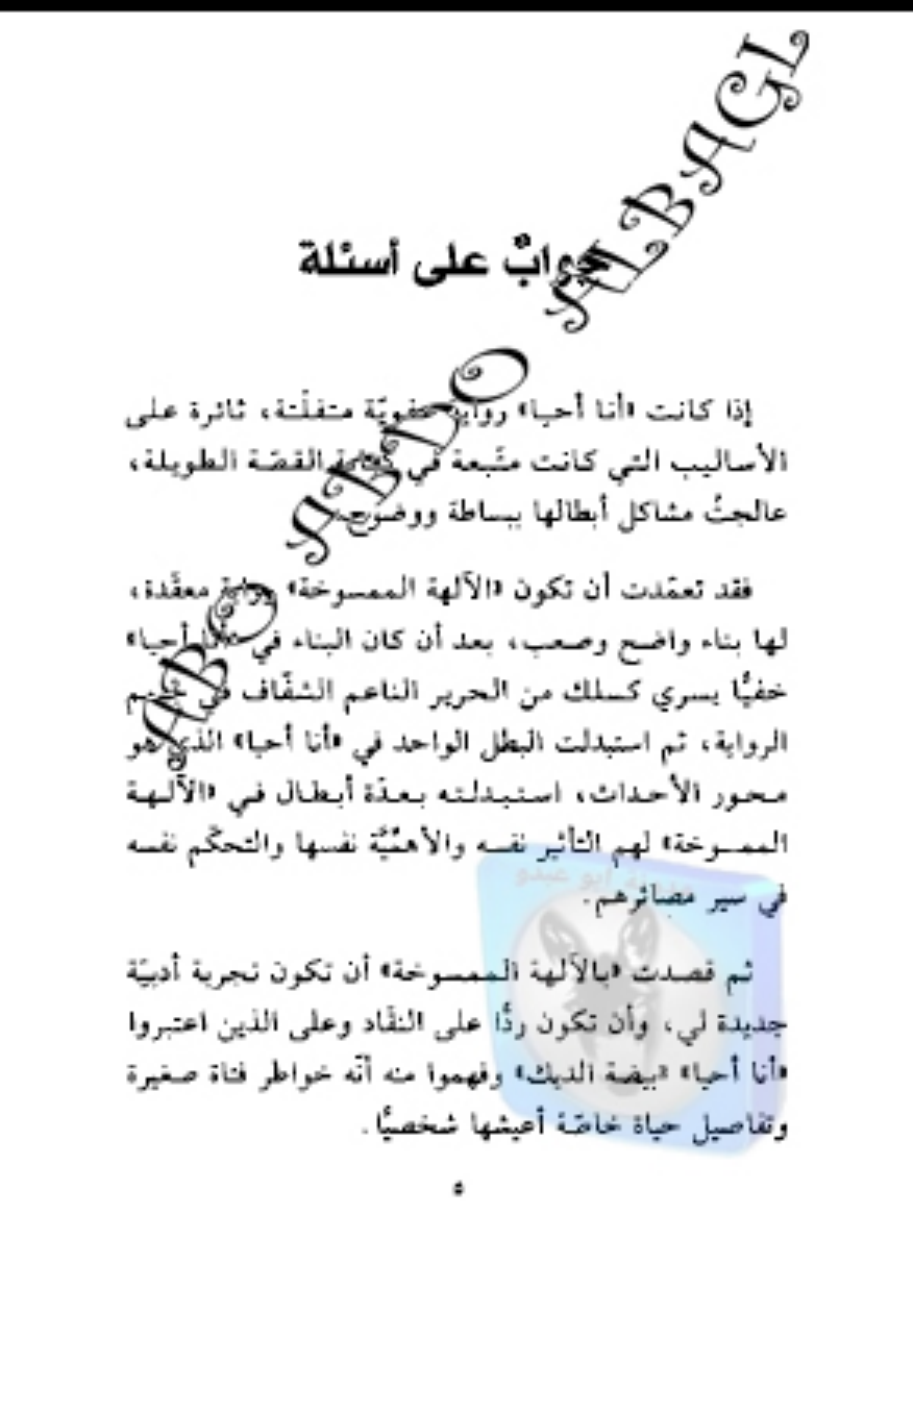 ABO ABDO ALBAGL
جوابٌ على أسئلة
إذا كانت «أنا أحيا» رواية عفويّة متفلّتة، ثائرة على
الأساليب التي كانت متّبعة في كتابة القصّة الطويلة،
عالجتُ مشاكل أبطالها ببساطة ووضوح.
فقد تعمّدت أن تكون «الآلهة الممسوخة» رواية معقّدة،
لها بناء واضح وصعب، بعد أن كان البناء في «أنا أحيا»
خفيًّا يسري كسلك من الحرير الناعم الشفّاف في
الرواية، ثم استبدلت البطل الواحد في «أنا أحيا» الذي هو
محور الأحداث، استبدلته بعدّة أبطال في «الآلهة
الممسوخة» لهم التأثير نفسه والأهمّيّة نفسها والتحكّم نفسه
في سير مصائرهم.
ثم قصدت «بالآلهة الممسوخة» أن تكون تجربة أدبيّة
جديدة لي، وأن تكون ردًّا على النقّاد وعلى الذين اعتبروا
«أنا أحيا» «بيضة الديك» وفهموا منه أنّه خواطر فتاة صغيرة
وتفاصيل حياة خاصّة أعيشها شخصيًّا.
٥